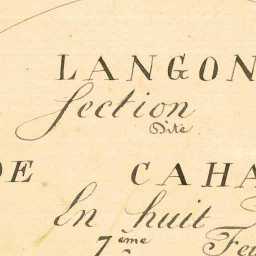 LANGON
Section
Dite
DE CAHA
En huit
7ème Feu